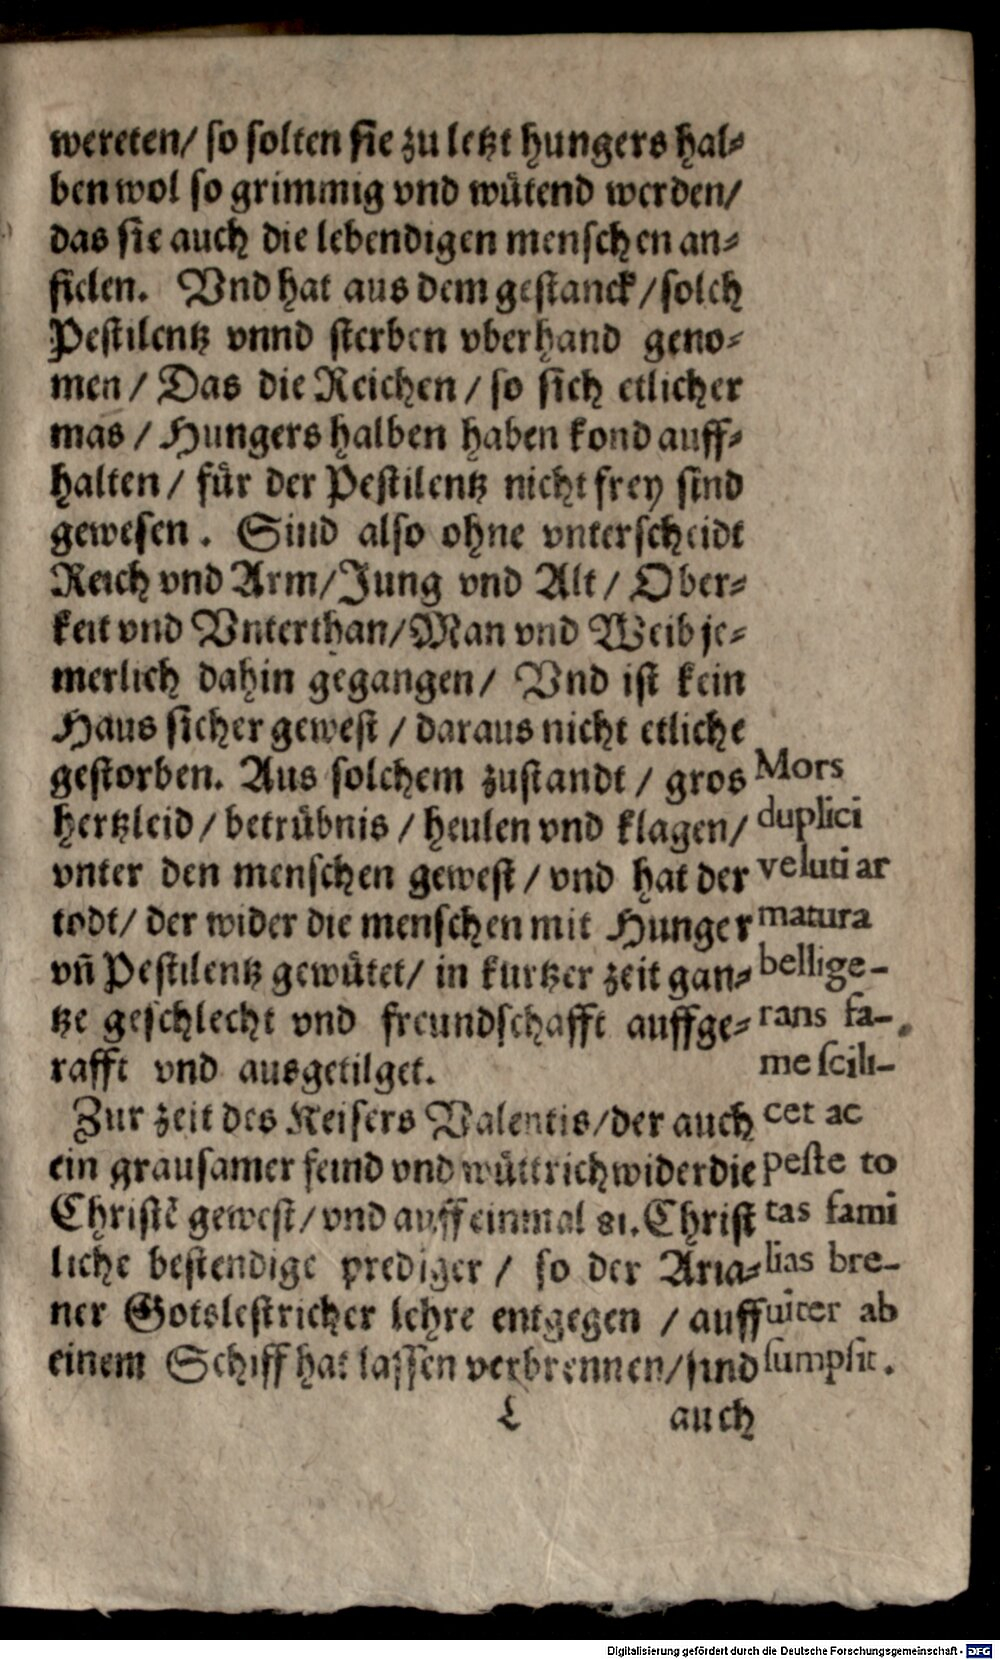 wereten/ so solten sie zu letzt hungers hal⸗
ben wol so grimmig vnd wuͤtend werden/
das sie auch die lebendigen menschen an⸗
fielen. Vnd hat aus dem gestanck/ solch
Pestilentz vnnd sterben vberhand geno⸗
men/ Das die Reichen/ so sich etlicher
mas/ Hungers halben haben kond auff⸗
halten/ fuͤr der Pestilentz nicht frey sind
gewesen. Sind also ohne vnterscheidt
Reich vnd Arm/ Jung vnd Alt/ Ober⸗
keit vnd Vnterthan/ Man vnd Weib je⸗
merlich dahin gegangen/ Vnd ist kein
Haus sicher gewest/ daraus nicht etliche
gestorben. Aus solchem zustandt/ gros
hertzleid/ betruͤbnis/ heulen vnd klagen/
vnter den menschen gewest/ vnd hat der
todt/ der wider die menschen mit Hunger
vñ Pestilentz gewuͤtet/ in kurtzer zeit gan⸗
tze geschlecht vnd freundschafft auffge⸗
rafft vnd ausgetilget.
Zur zeit des Keisers Valentis/ der auch
ein grausamer feind vnd wuͤttrich wider die
Christē gewest/ vnd auff einmal 81. Christ
liche bestendige prediger/ so der Aria⸗
ner Gotslestricher lehre entgegen/ auff
einem Schiff hat lassen verbrennen/ sind
L auch
Mors
duplici
veluti ar
matura
bellige-
rans fa-
me scili-
cet ac
peste to
tas fami
lias bre-
uiter ab
sumpsit.
Digitalisierung gefördert durch die Deutsche Forschungsgemeinschaft - DFG